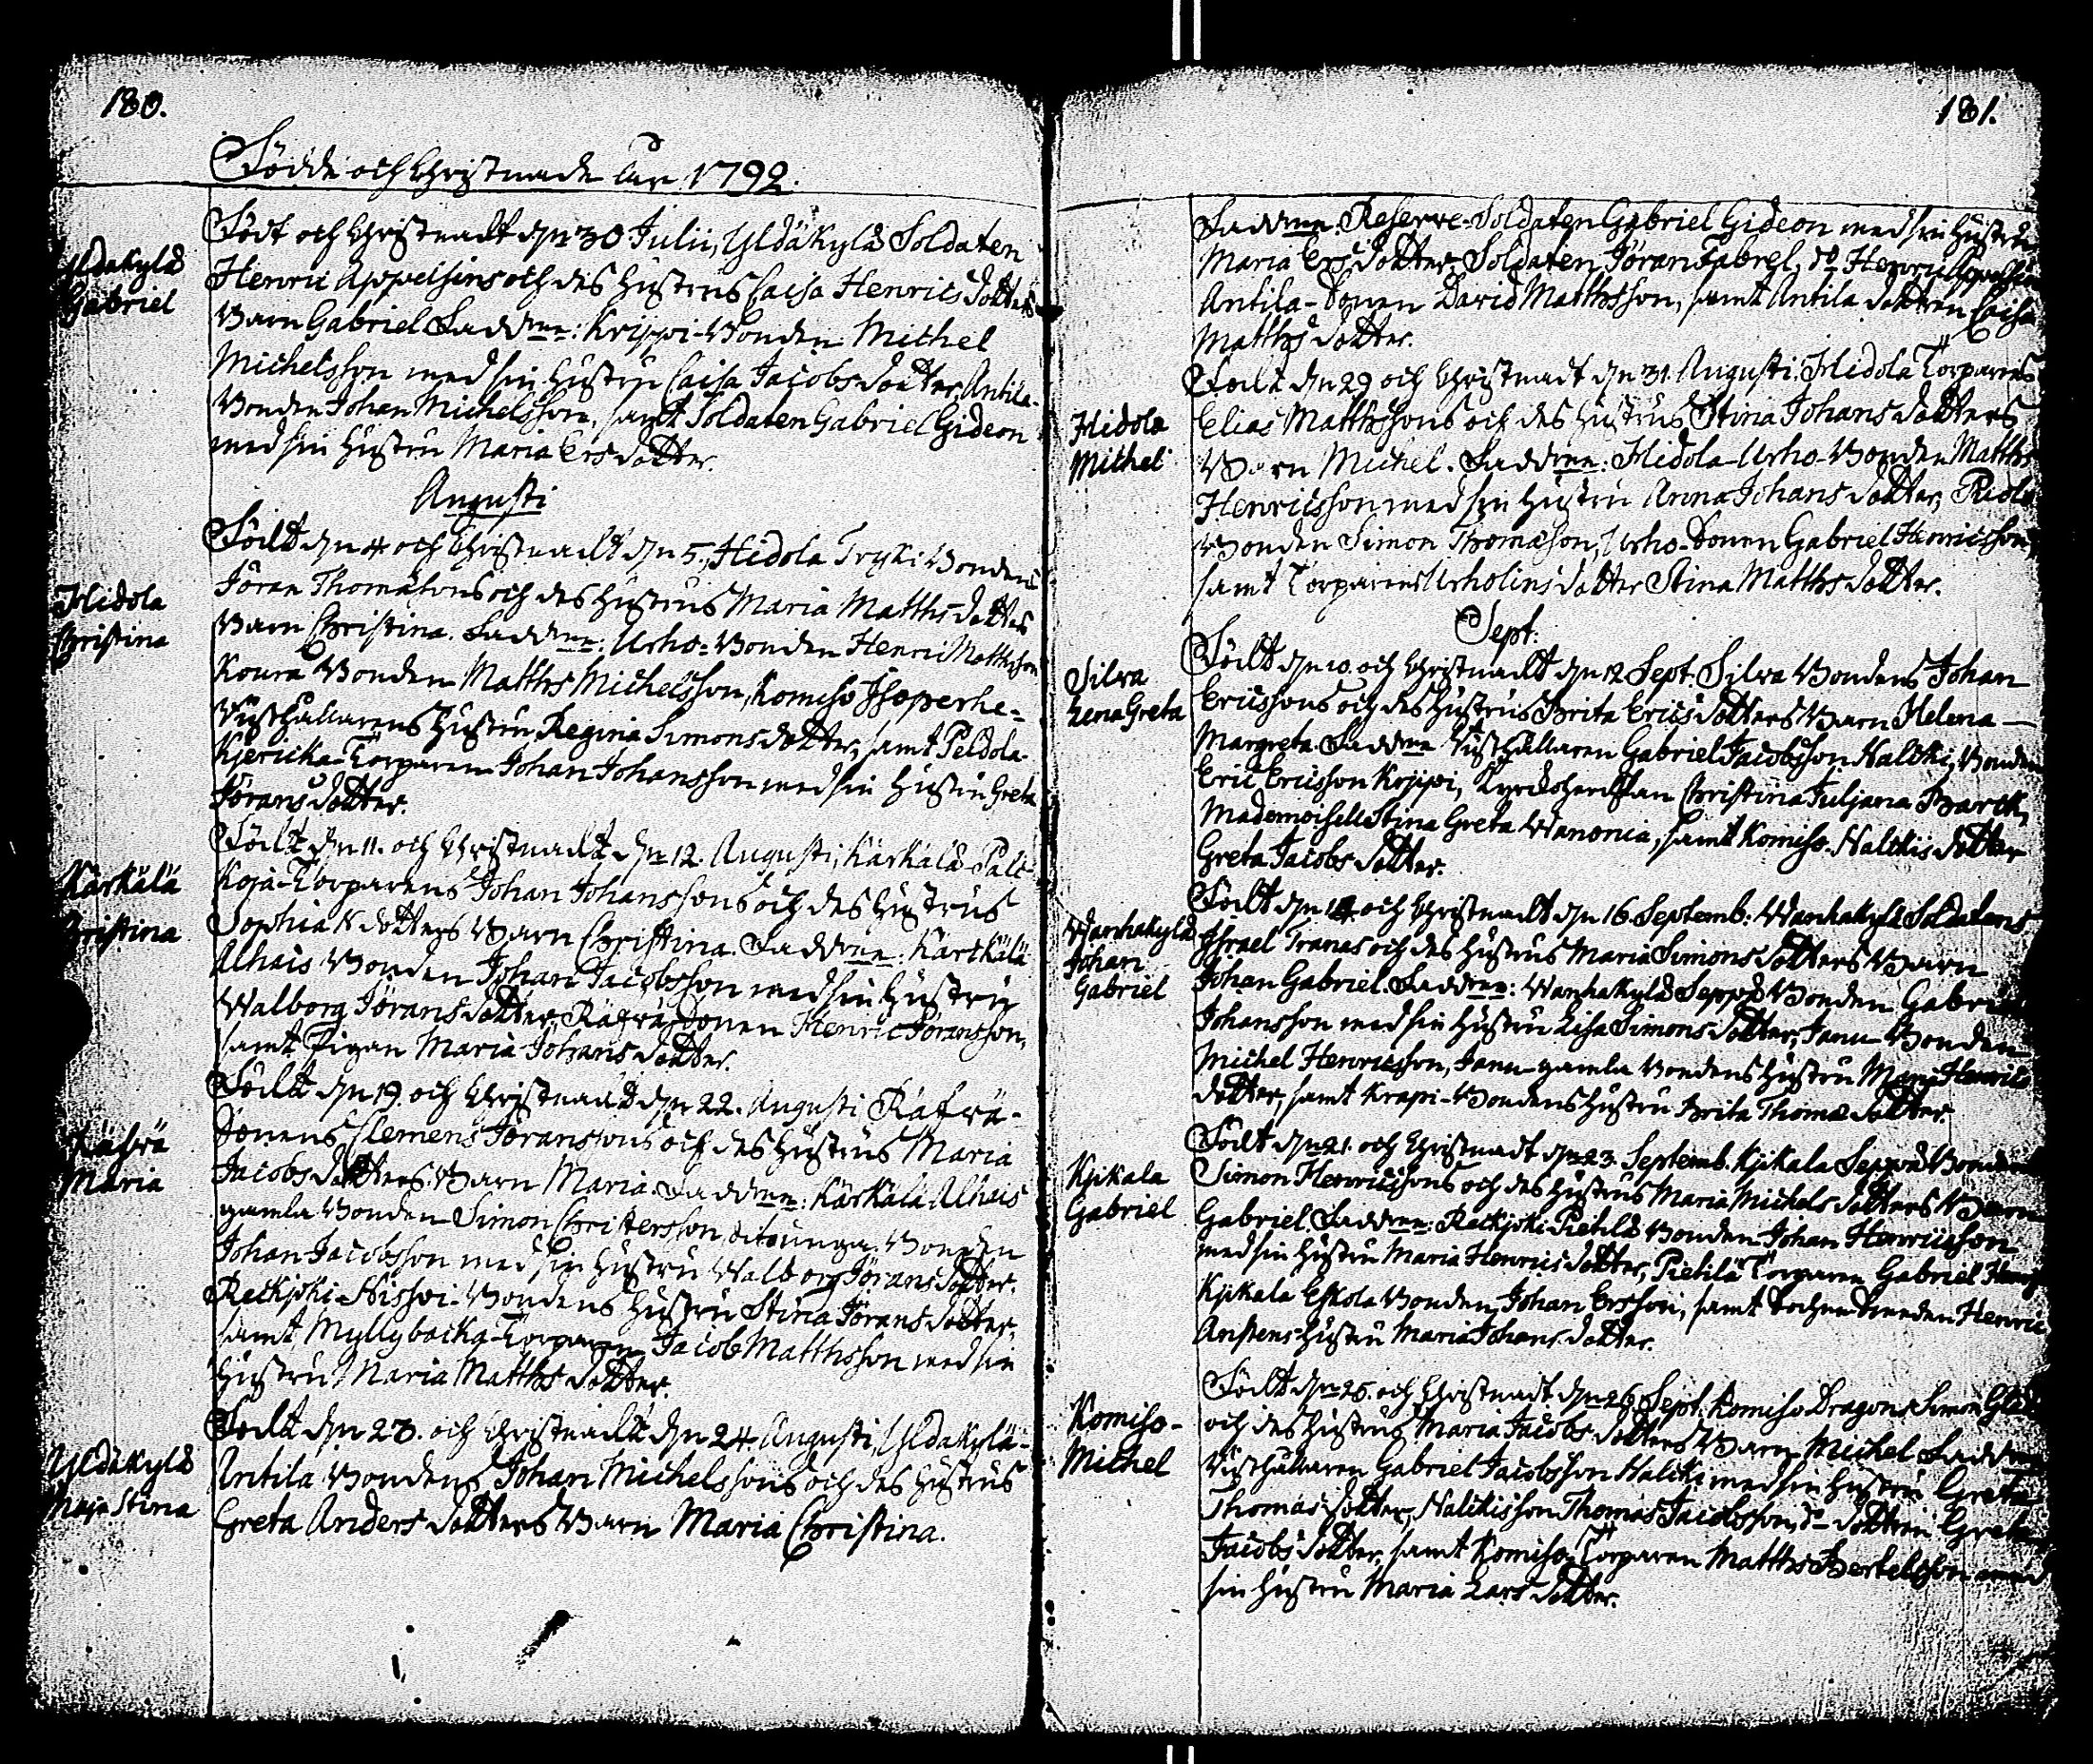 180.
Födde och Christnade År 1792.
Yldäkylä
Gabriel
Född och Christnadt d. 30 Julii, Yldäkylä Soldaten
Henric Appelsins och des hustrus Caisa Henrics dotters
Barn Gabriel Faddrar: Krippi-Bonden Michel
Michelsson med sin hustru Caisa Jacobs dotter, Antila-
Bonden Johan Michelsson, samt Soldaten Gabriel Gideon
med sin hustru Maria Ers dotter.
Augusti
Hidola
Christina
Född den 4 och Christnadt den 5, Hidola Tryki Bondens
Jöran Thomæsons och des hustrus Maria Matths dotters
Barn Christina. Faddrar: Urho-Bonden Henric Matthsson
Koura Bonden Matths Michelsson, Komiso
hustru Regina Simonsdotter, samt Peldola-
Kjericka-Torparen Johan Johansson med sin hustru Greta
Jörans dotter.
Kärkälä
Christina
Född den 11. och Christnadt den 12. Augusti, Kärkälä Palt-
Koja-Torparens Johan Johanssons och des hustrus
Sophia N dotters Barn Christina. Faddrar: Kärkälä
Alhais Bonden Johan Jacobsson med sin hustru
Walborg Jörans dotter, Räfrä-Sonen Henric Jöransson,
samt Pigan Maria Johans dotter.
Räfrä
Maria
Född den 19. och Christnadt den 22. Augusti Räfrä-
Sonens Clemens Jöranssons och des hustrus Maria
Jacobs dotters Barn Maria. Faddrar: Kärkälä Alhais
gamla Bonden Simon Christersson, dito unga Bonden
Johan Jacobsson med sin hustru Walborg Jörans dotter.
Ratkjoki-Nissoi-Bondens hustru Stina Jörans dotter,
samt Myllybacka-Torparen Jacob Matthsson med sin
hustru Maria Matths dotter.
Yldäkylä
Maja Stina
Född den 23. och Christnadt den 24. Augusti, Yldäkylä-
Antila Bondens Johan Michelssons och des hustrus
Greta Anders dotters Barn Maria Christina.
181.
Faddrar: Reserve-Soldaten Gabriel Gideon med sin hustru
Maria Ers dotter, Soldaten Jöran Fabrel, do Henric Appelsin
Antila-Sonen David Matthsson, samt Antila dottren Caisa
Matths dotter.
Hidola
Michel
Född den 29 och Christnadt den 31. Augusti. Hidola Torparens
Elias Matthssons och des hustrus Stina Johans dotters
Barn Michel. Faddrar: Hidola-Urho-Bonden Matths
Henricsson med sin hustru Anna Johans dotter,
Bonden Simon Thomæson, Urho-Sonen Gabriel Henricsson,
samt Torparens Urholins dotter Stina Matths dotter.
Sept:
Silva
Lena Greta
Född den 10. och Christnadt den 12 Sept. Silva Bondens Johan
Ericssons och des hustrus Brita Erics dotters Barn Helena
Margreta. Faddrar Gabriel Jacobsson Halcki, Bonden
Eric Ericsson Koppi, Christina Juljana Barck,
Mademoiselle Stina Greta Wanonia, samt Komiso-Halckis dotter
Greta Jacobs dotter.
Wanhakylä
Johan
Gabriel
Född den 14. och Christnadt den 16. Septemb: Wanhakylä Soldatens
Israel Tranas och des hustrus Maria Simons dotters Barn
Johan Gabriel. Faddrar: Wanhakylä Seppä Bonden Gabriel
Johansson med sin hustru Lisa Simons dotter, Janu-Bonden
Michel Henricsson, Janu gamla Bondens hustru Maria Henrics
dotter, samt Krapi-Bondens hustru Brita Thomæ dotter.
Kjikala
Gabriel
Född den 21. och Christnadt den 23 Septemb. Kjikala Seppä Bondens
Simon Henricssons och des hustrus Maria Michels dotters Barn
Gabriel. Faddrar: Ratkjoki-Pietilä Bonden Johan Henricsson
med sin hustru Maria Henrics dotter, Pietilä Torparen Gabriel
Kjikala Eskola Bonden Johan Ersson, samt Henric
Anstens hustru Maria Johans dotter.
Komiso-
Michel
Född den 25. och Christnadt den 26 Sept. Komiso Dragons Simon Glad
och des hustrus Maria Jacobs dotters Barn Michel Faddrar
Gabriel Jacobsson Halcki med sin hustru Greta
Thomas dotter, Halckis son Thomas Jacobsson, do dottren Greta
Jacobs dotter, samt Komiso Torparen Matths Bertelsson med
sin hustru Maria Lars dotter.